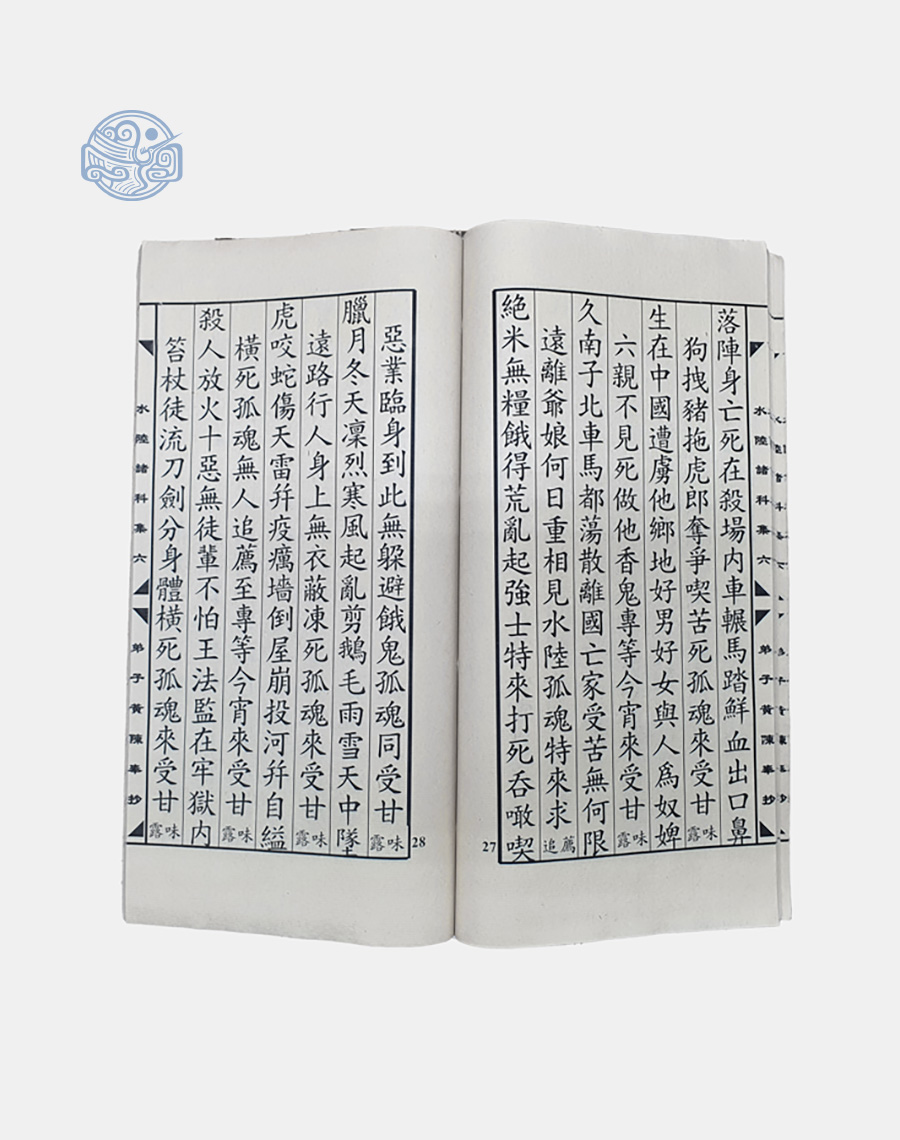 水陸諸科集六
弟子黃陳奉抄
落陣身亡死在殺場内車輾馬踏鮮血出口鼻
狗拽豬拖虎郎奪爭喫苦死孤魂來受甘露味
生在中國遭虜他鄉地好男好女與人爲奴婢
六親不見死做他香鬼專等今宵來受甘露味
久南子北車馬都蕩散離國亡家受苦無何限
遠離爺娘何日重相見水陸孤魂特來求追薦
絶米無糧餓得荒亂起強士特來打死吞噉喫
27
惡業臨身到此無躱避餓鬼孤魂同受甘露味
臘月冬天凜烈寒風起亂剪鵝毛雨雪天中墜
遠路行人身上無衣蔽凍死孤魂來受甘露味
虎咬蛇傷天雷并疫癘墻倒屋崩投河并自縊
橫死孤魂無人追薦至專等今宵來受甘露味
殺人放火十惡無徒輩不怕王法監在牢獄内
笞杖徒流刀劍分身體橫死孤魂來受甘露味
28
水陸諸科集六
弟子黃陳奉抄